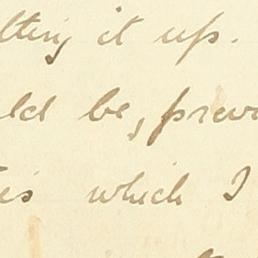 lting it up.
uld be, prev
is which I